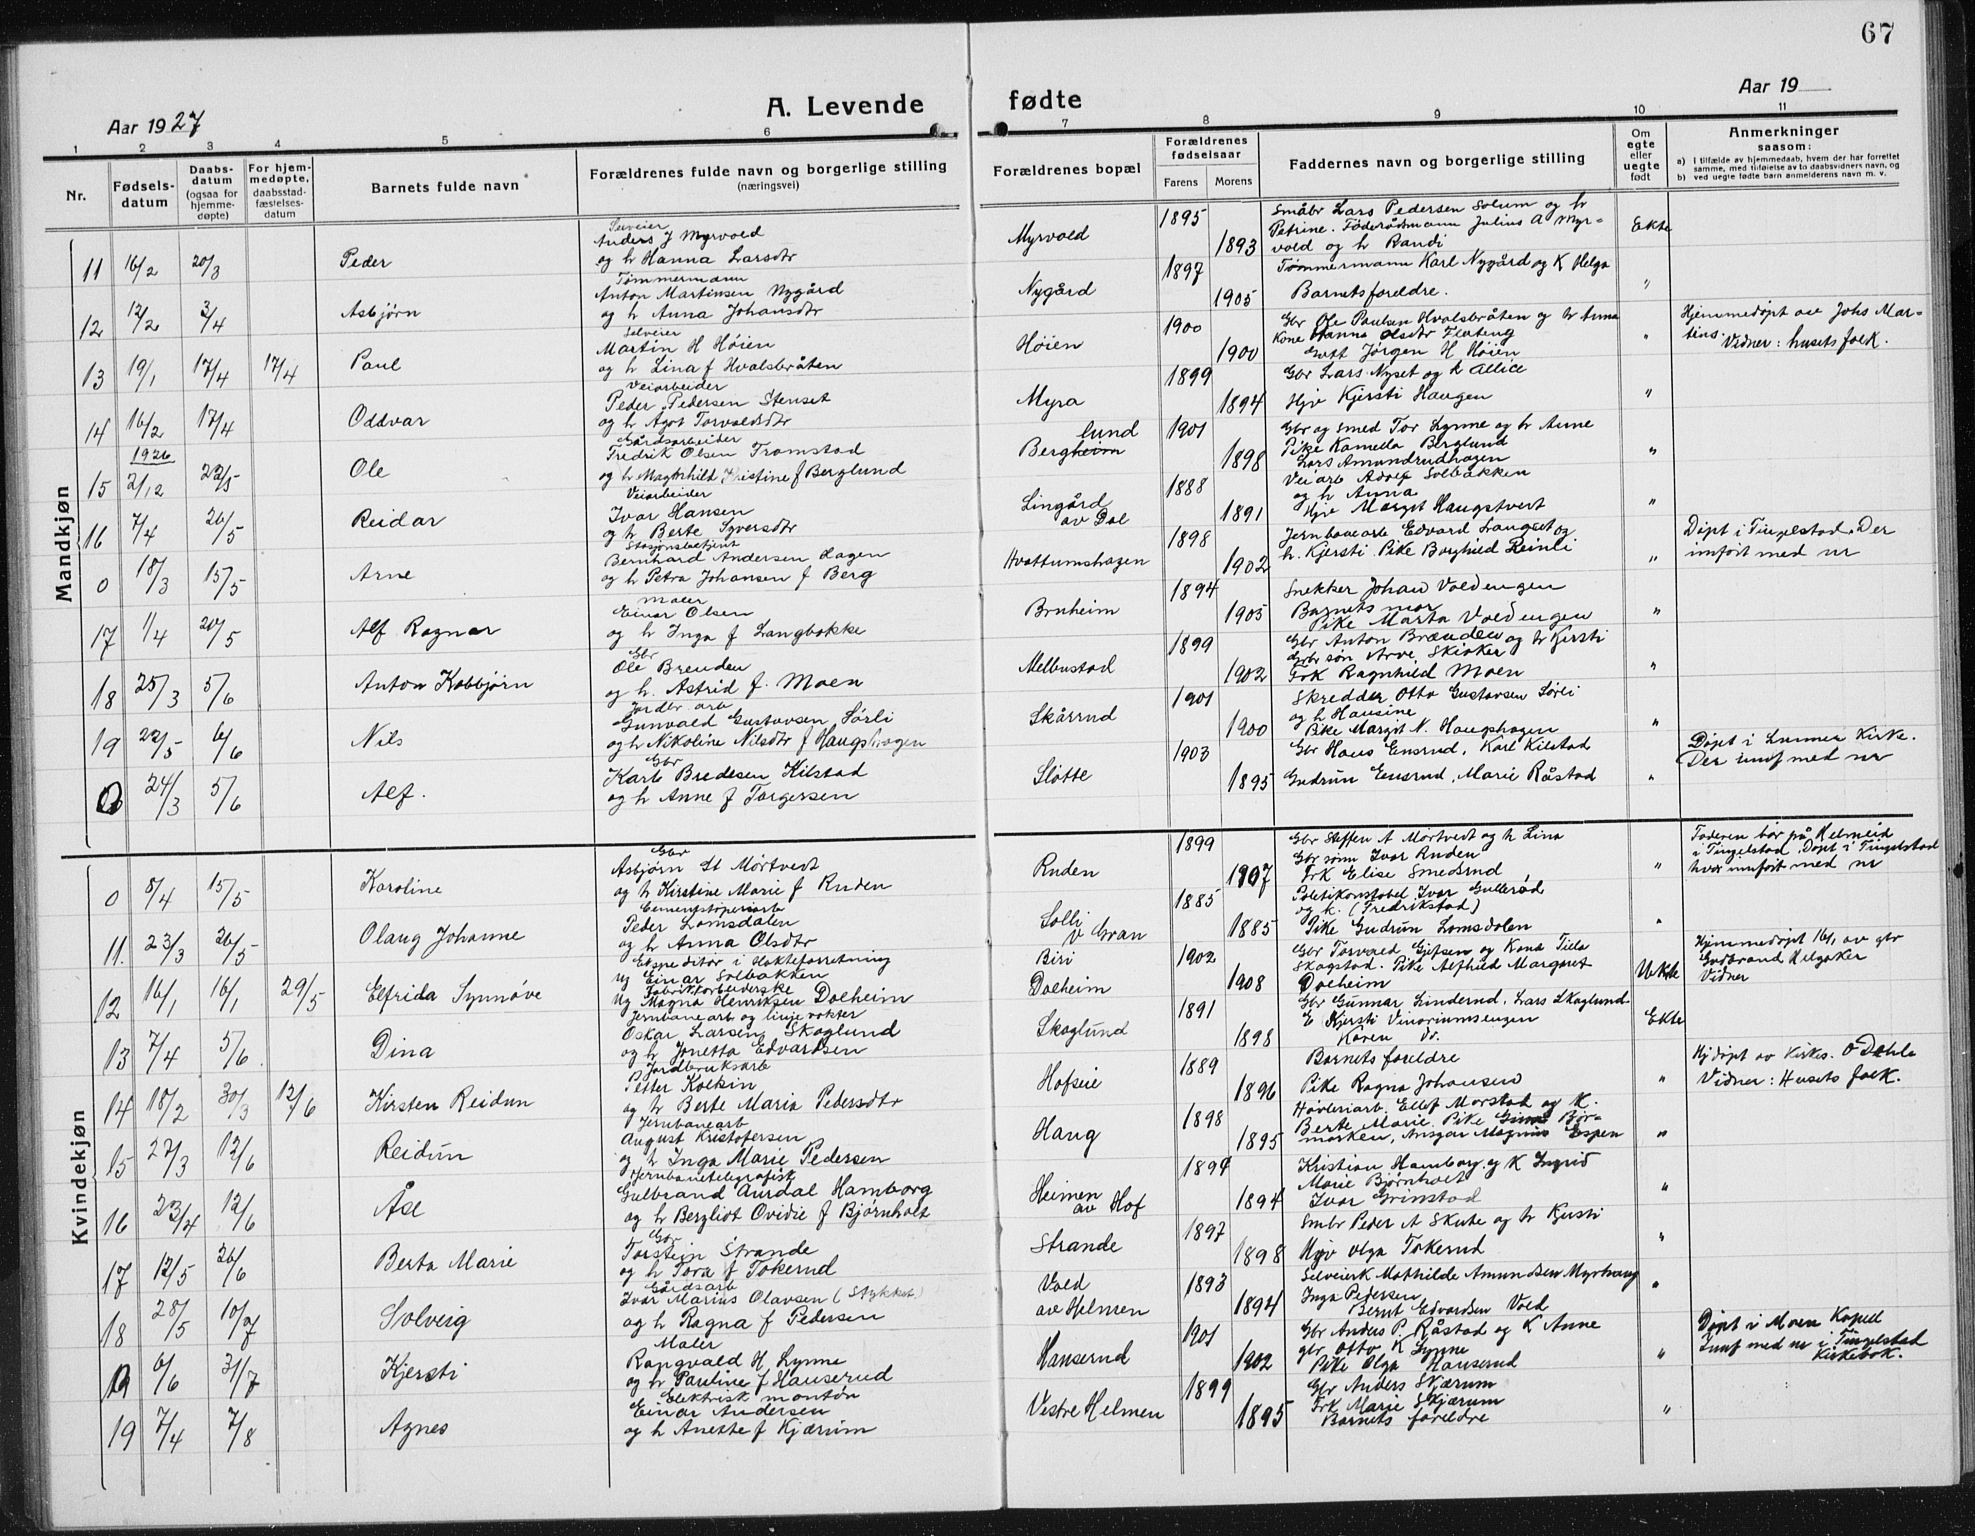 67
Aar 1927
A. Levende fødte
Aar 19
1 2 3 4 5 6 7 8 9 10 11
Nr.
Fødsels-
datum
Daabs-
datum
(ogsaa for
hjemme-
døpte)
For hjem-
medøpte,
daabsstad-
fæstelses-
datum
Barnets fulde navn
Forældrenes fulde navn og borgerlige stilling
(næringsvei)
Forældrenes bopæl
Forældrenes
fødselsaar
Farens Morens
Faddernes navn og borgerlige stilling
Om
egte
eller
uegte
født
Anmerkninger
saasom:
a) I tilfælde av hjemmedaab, hvem der har forrettet
samme, med tilføielse av to daabsvidners navn, og
b) ved uegte fødte barn anmelderens navn m. v.
Mandkjøn
11 16/2 20/3 Peder
Selveier
Anders J Myrvold
og h Hanna Larsdtr
Myrvold 1895 1893
Småbr Lars Pedersen Solum og h
Petrine. Føderådsmann Julius A Myr-
vold og h Randi
Ekte
12 12/2 3/4 Asbjørn
Tømmermann
Anton Martinsen Nygård
og h Anna Johansdtr
Nygård 1897 1905
Tømmermann Karl Nygård og K Helga
Barnets foreldre.
"
13 19/1 17/4 17/4 Paul
Selveier
Martin H Høien
og h Lina f Hvalsbråten
Høien 1900 1900
Gbr Ole Paulsen Hvalsbråten og h Anna
Kone Hanna Olsdtr Flateng
Jørgen H Høien
"
Hjemmedøpt av Johs Mar-
tins. Vidner: husets folk.
14 16/2 17/4 Oddvar
Veiarbeider
Peder Pedersen Stenset
og h Agot Torvaldsdtr
Myra 1899 1894
Gbr Lars Nyset og h Allice
Hjv Kjersti Haugen
"
15 1926 2/12 22/5 Ole
Gårdsarbeider
Fredrik Olsen Tromstad
og h Magnhild Kristine f Berglund
lund
Bergheim 1901 1898
Gbr og smed Tor Lynne og h Anne
Pike Kamella Berglund
Lars Amundrudhagen
"
16 7/4 26/5 Reidar
Veiarbeider
Ivar Hansen
og h Berte Syversdtr
Lingård
av Dal 1888 1891
Veiarb Adolf Solbakken
og h Anna
Hjv Margit Haugstvert
"
0 18/3 15/5 Arne
Stasjonsbetjent
Bernhard Andersen Hagen
og h Petra Johansen f Berg
Hvattumshagen 1898 1902
Jernbanearb Edvard Langset og
h. Kjersti Pike Borghild Reinli
"
Døpt i Tingelstad. Der
innført med nr
17 1/4 20/5 Alf Ragnar
Maler
Einar Olsen
og h Inga f Langbakke
Bruheim 1894 1905
Snekker Johan Voldengen
Barnets mor
Pike Marta Voldengen
"
18 25/3 5/6 Anton Kobbjørn
Gbr
Ole Brenden
og h. Astrid f. Moen
Melbustad 1899 1902
Gbr Anton Brænden og h Kirsti
Gbr søn Arve Skiaker
Frk Ragnhild Moen
"
19 22/5 6/6 Nils
Jordbr arb
Gunvald Gustavsen Sørli
og h Nikoline Nilsdtr f Haugshagen
Skårrud 1901 1900
Skredder Otto Gustavsen Sørli
og h Hansine
Pike Margit N. Haugshagen
"
0 24/3 5/6 Alf.
Gbr
Karl Bredesen Kilstad
og h Anne f Torgersen
Sløtte 1903 1895
Gbr Hans Ensrud, Karl Kilstad
Gudrun Ensrud, Marie Råstad
"
Døpt i Lunner Kirke.
Der innf med nr
Kvindekjøn
0 8/4 15/5 Karoline
Gbr
Asbjørn St Mørtvedt
og h Kirstine Marie f Ruden
Ruden 1899 1907
Gbr Steffen A Mørtvedt og h Lina
Gbr sønn Ivar Ruden
Frk Elise Smedsrud
"
Faderen bor på Helmeid
i Tingelstad. Døpt i Tingelstad
hvor innført med nr
11. 23/3 26/5 Olaug Johanne
Cementstøperiarb
Peder Lomsdalen
og h Anna Olsdtr
Solli
v Gran 1885 1885
Politikonstabel Ivar Gullerød
og k. (Fredrikstad)
Pike Gudrun Lomsdalen
"
12 16/1 16/1 29/5 Elfrida Synnøve
Ekspeditør i Hakteforretning
Ug Einar Solbakken
Fabrikkarbeiderske
Ug Magna Henriksen Dolheim
Biri
Dolheim 1902 1908
Gbr Torvald Gifsen og Kona Tilla
Skagstad. Pike Alfhild Margaret
Dolheim
Uekte
Hjemmedøpt 16/1 av gbr
Gudbrand Helgaker
Vidner
13 7/4 5/6 Dina
Jernbanearb og linjevokter
Oskar Larsen Skoglund
og h Jonetta Edvardsen
Skoglund 1891 1898
Gbr Gunnar Linderud, Lars Skoglund
E Kjersti
Karen Do.
Ekte
14 18/2 30/3 12/6 Kirsten Reidun
Jordbruksarb
Petter Kolkin
og h Berte Maria Pedersdtr
Hofseie 1889 1896
Barnets foreldre
Pike Ragna Johansen
"
Hj døpt av Kirkes. O Dahle
Vidner: Husets folk.
15 27/3 12/6 Reidun
Jernbanearb
August Kristofersen
og h Inga Marie Pedersen
Haug 1898 1895
Høvleriarb. Ellef Morstad og K.
Berte Marie. Pike Gina Bjør-
marken, Ansgar Magnus Espen
"
16 23/4 12/6 Åse
Jernbanetelegrafist
Gulbrand Aurdal Hamborg
og h Bergliot Ovidie f Bjørnholt
Heimen
av Hof 1894 1894
Kristian Hamborg og K Ingrid
Marie Bjørnholt
Ivar Grinstad
"
17 12/5 26/6 Berta Marie
Gbr
Torstein Strande
og h Tora f Tokerud
Strande 1897 1898
Smbr Peder A Skute og h Kjersti
Hjv Olga Tokerud
"
18 28/5 10/7 Solveig
Gårdsarb
Ivar Marius Olavsen (Stykket)
og h Ragna f Pedersen
Vold
av Helmen 1893 1894
Selveierk Mathilde Amundsen Myrhaug
Inga Pedersen
Bernt Edvardsen Vold
"
0 6/6 31/7 Kjersti
Maler
Rangvald H Lynne
og h Pauline f Hanserud
Hanserud 1901 1902
Gbr Anders P. Råstad og K Anne
gbr Otto K Lynne
Pike Olga Hanserud
"
Døpt i Moen Kapel
Innf med nr i Tingelstad
Kirkebok.
19 7/4 7/8 Agnes
Elektrisk montør
Einar Andersen
og h Anette f Kjærum
Vestre Helmen 1899 1895
Gbr Anders Skjærum
Frk Marie Skjærum
Barnets foreldre
"